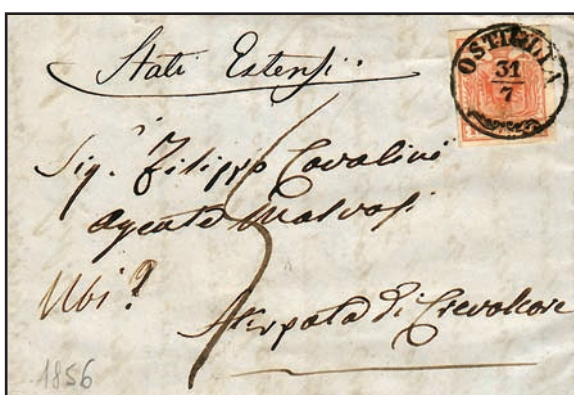 Stati Estensi
OSTIGLIA
31
7
Sig. Filippo Cavalini
Agente Malvasi
Ubi?
di Crevalcore
1856